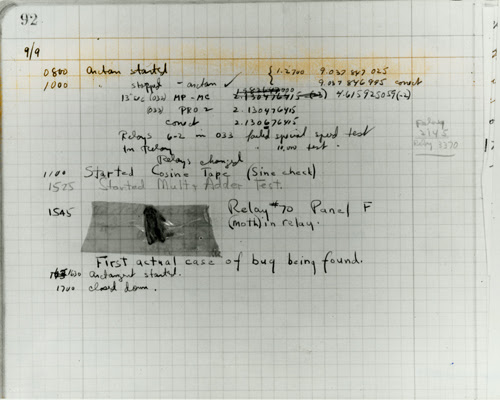 92
9/9
0800 Antan started { 1.2700 9.037 847 025
1000 " stopped - antan ✓ 9.037 846 995 correct
13"00 (033) MP - MC 2.130476415 (-3) 4.615925059(-2)
(033) PRO 2 2.130476415
correct 2.130676415
Relays 6-2 in 033 failed special speed test
in relay " 10,000 test.
Relays changed
Relay
2145
Relay 3370
1100 Started Cosine Tape (Sine check)
1525 Started Mult+ Adder Test.
1545 Relay #70 Panel F
(moth) in relay.
First actual case of bug being found.
1630 antangent started.
1700 closed down.